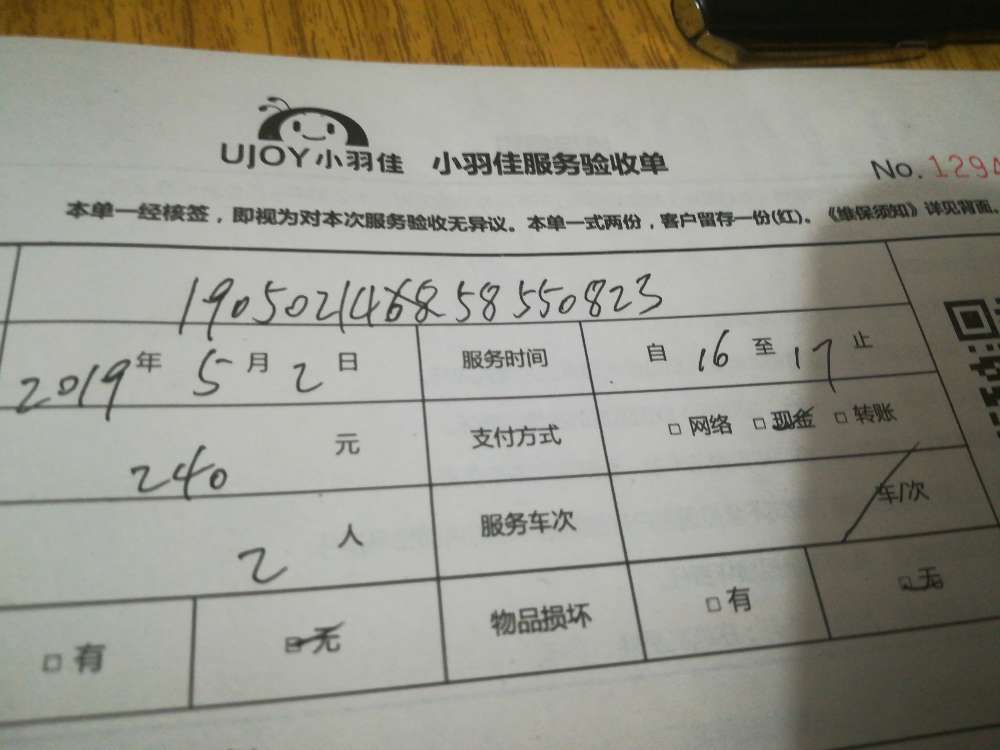 UJOY小羽佳 小羽佳服务验收单 No.1294
本单一经核签，即视为对本次服务验收无异议。本单一式两份，客户留存一份(红)。《维保须知》详见背面。
190502146858550823
2019年5月2日 服务时间 自16至17止
240元 支付方式 □网络 □现金 □转账
2人 服务车次 车/次
□有 □无 物品损坏 □有 □无